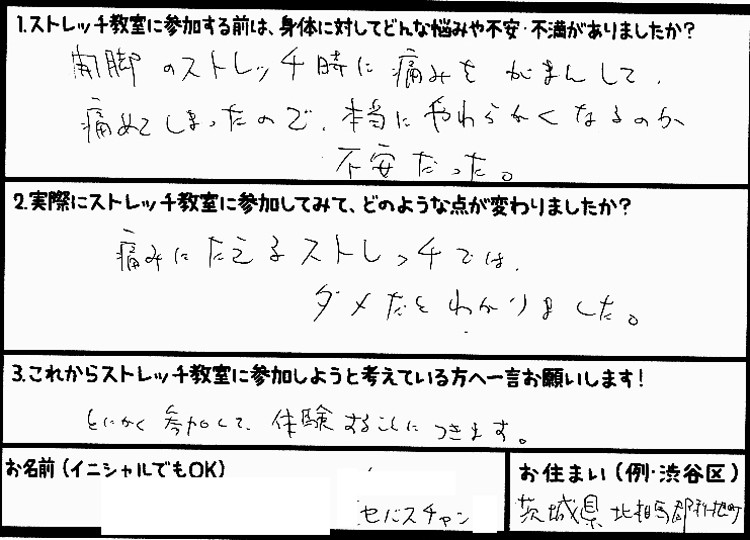 1.ストレッチ教室に参加する前は、身体に対してどんな悩みや不安・不満がありましたか?
開脚のストレッチ時に痛みをがまんして、
痛めてしまったので、本当にやわらかくなるのか
不安だった。
2.実際にストレッチ教室に参加してみて、どのような点が変わりましたか?
痛みにたえるストレッチでは、
ダメだとわかりました。
3.これからストレッチ教室に参加しようと考えている方へ一言お願いします!
とにかく参加して、体験することにつきます。
お名前(イニシャルでもOK)
セバスチャン
お住まい(例・渋谷区)
茨城県北相馬郡